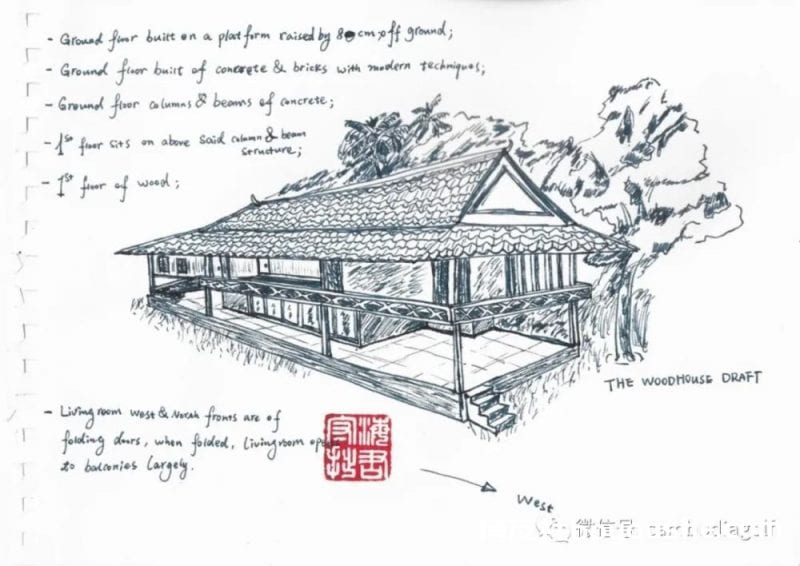 - Ground floor built on a platform raised by 80cm off ground;
- Ground floor built of concrete & bricks with modern techniques;
- Ground floor columns & beams of concrete;
- 1st floor sits on above said column & beam
structure;
- 1st floor of wood;
THE WOODHOUSE DRAFT
- Livingroom West & North fronts are of
folding doors, when folded, livingroom opens
to balconies largely.
West
微信号